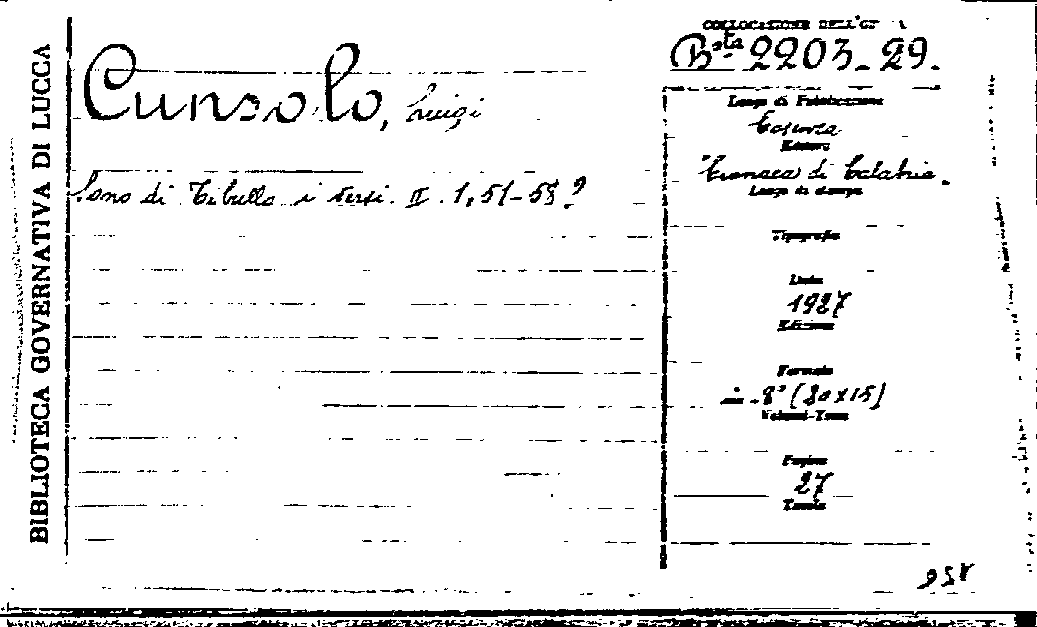 BIBLIOTECA GOVERNATIVA DI LUCCA
COLLOCAZIONE DELL'
Bsta 2203-29.
Cunsolo, Luigi
Sono di Tibullo i versi II. 1,51-58?
Luogo di Pubblicazione
Cosenza
Editore
Cronaca di Calabria.
Luogo di stampa
Tipografia
Data
1927
Edizione
Formato
in-8° (20x15)
Volumi-Tomi
Pagine
27
Tavole